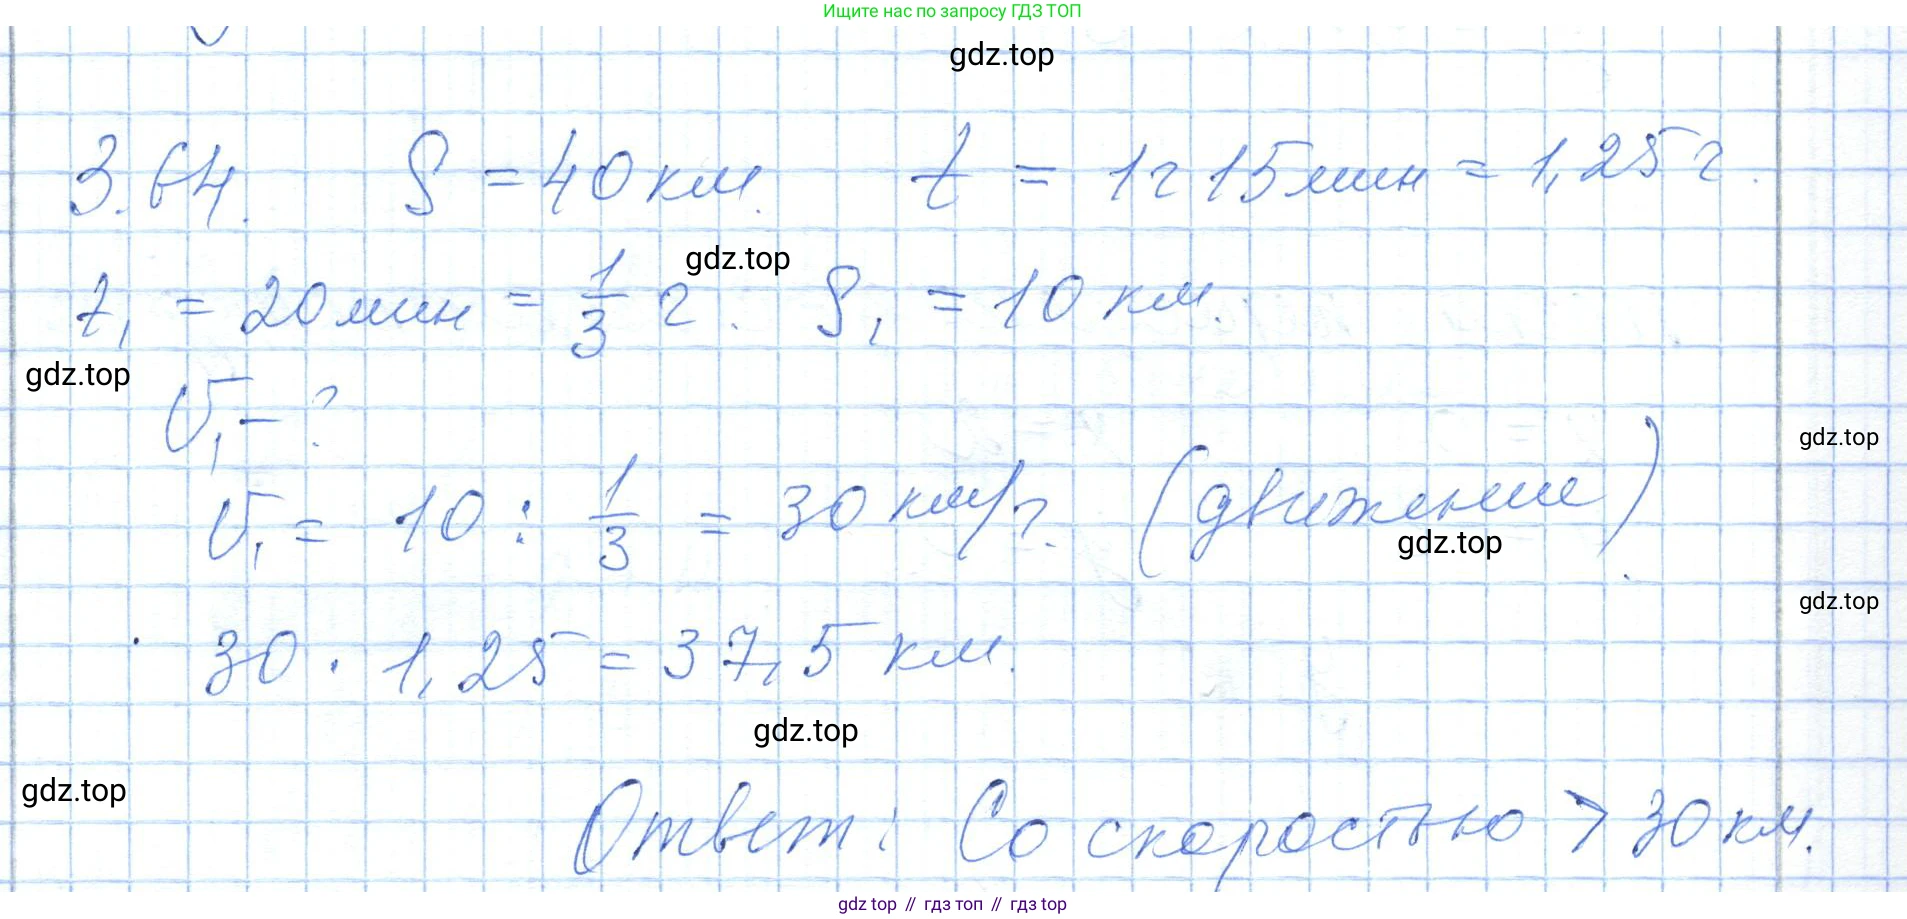 Ищите нас по запросу ГДЗ ТОП
gdz.top
3.64. S = 40 км. t = 1 ч 15 мин = 1,25 ч.
gdz.top
t₁ = 20 мин = 1/3 ч. S₁ = 10 км.
gdz.top
υ₁ - ?
gdz.top
υ₁ = 10 : 1/3 = 30 км/ч. (движение)
gdz.top
gdz.top
30 · 1,25 = 37,5 км.
gdz.top
gdz.top
Ответ: Со скоростью > 30 км.
gdz top // гдз топ // гдз top